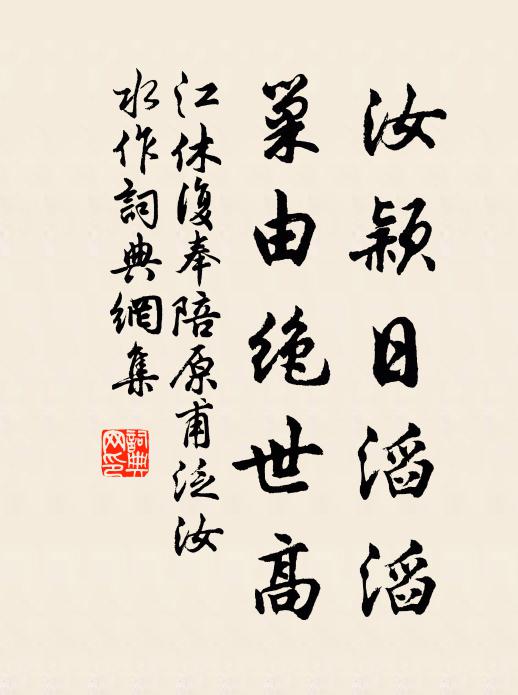 汝颍日滔滔
巢由绝世高
江休復奉陪原甫泛汝
水作詞典網集
詞典网印